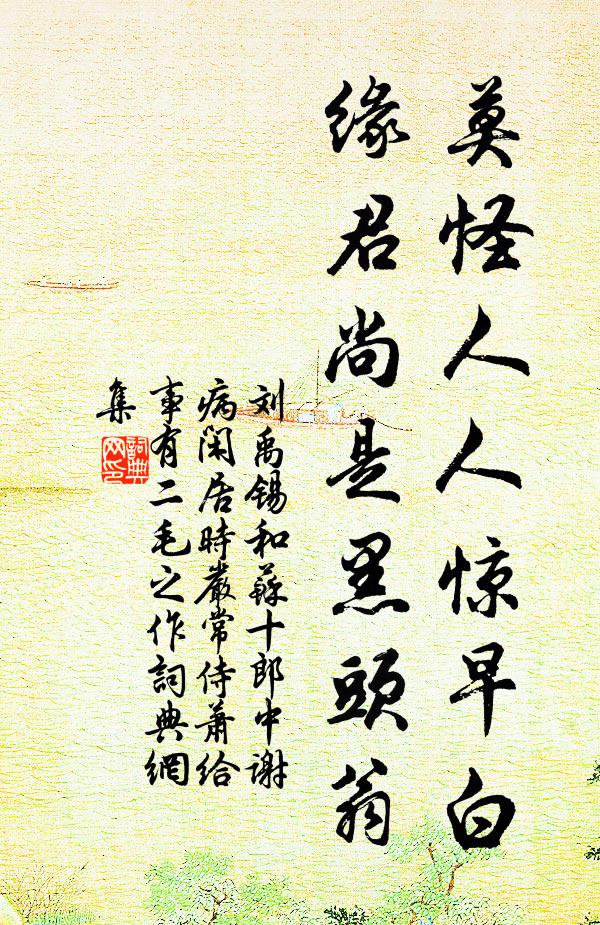 莫怪人人惊早白
缘君尚是黑头翁
刘禹锡和蘇十郎中谢
病闲居時嚴常侍萧给
事有二毛之作詞典網
集
詞典
网印